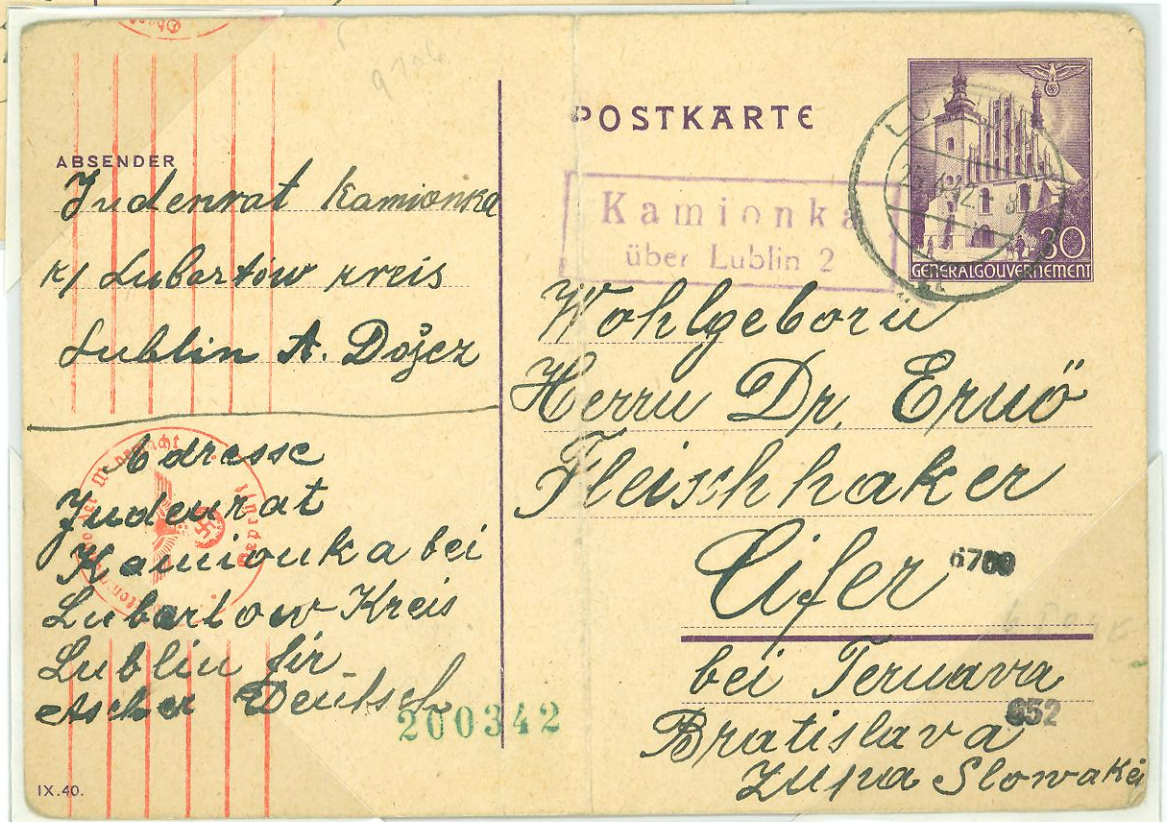 POSTKARTE
ABSENDER
Judenrat Kamionka
k/ Lubartów kreis
Lublin A. Dojcz
Adresse
Judenrat
Kamionka bei
Lubartow Kreis
Lublin für
Ascher Deutsch
200342
IX.40.
Kamionka
über Lublin 2
30
GENERALGOUVERNEMENT
Wohlgeborn
Herrn Dr, Ernö
Fleischhaker
Cifer
bei Ternava
652
Bratislava
Zupa Slowakei